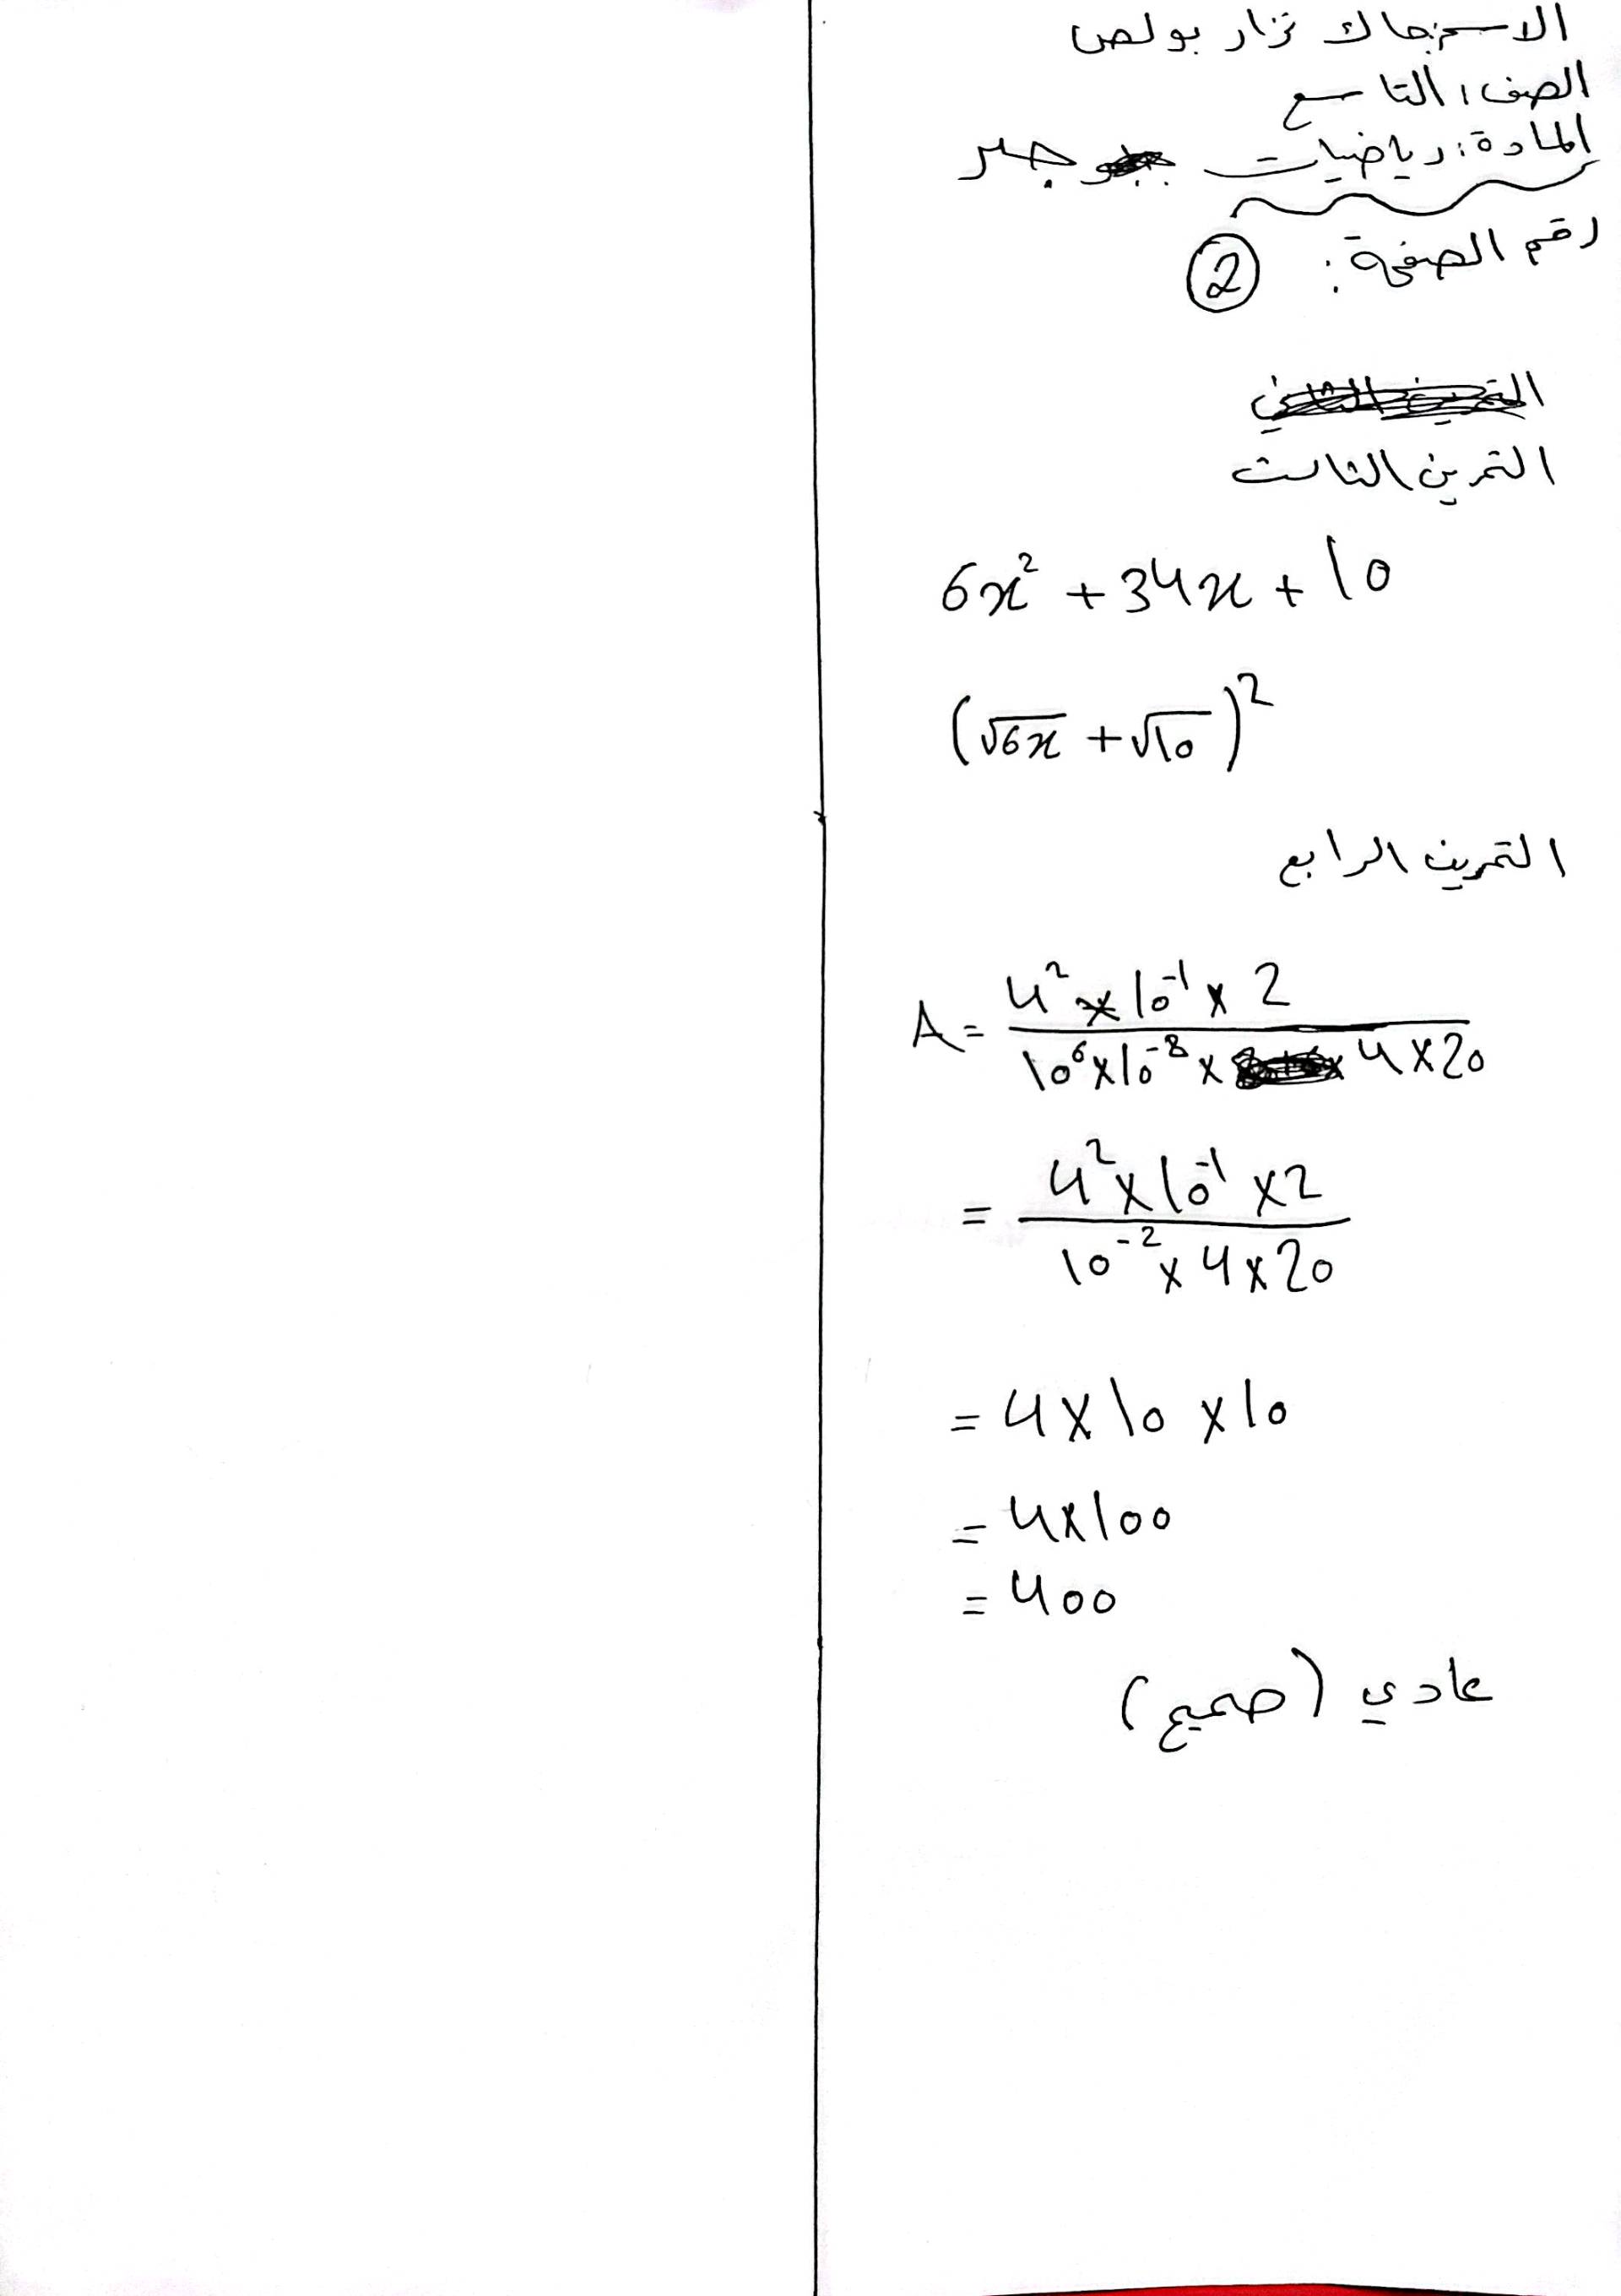 الاسم: جاك نزار بولص
الصف: التاسع
المادة: رياضيات جبر
رقم الصفحة: 2
التمرين الثالث
6x² + 34x + 10
(√6x + √10)²
التمرين الرابع
A = (4² × 10⁻¹ × 2) / (10⁶ × 10⁻⁸ × 4 × 20)
= (4² × 10⁻¹ × 2) / (10⁻² × 4 × 20)
= 4 × 10 × 10
= 4 × 100
= 400
عادي (صحيح)